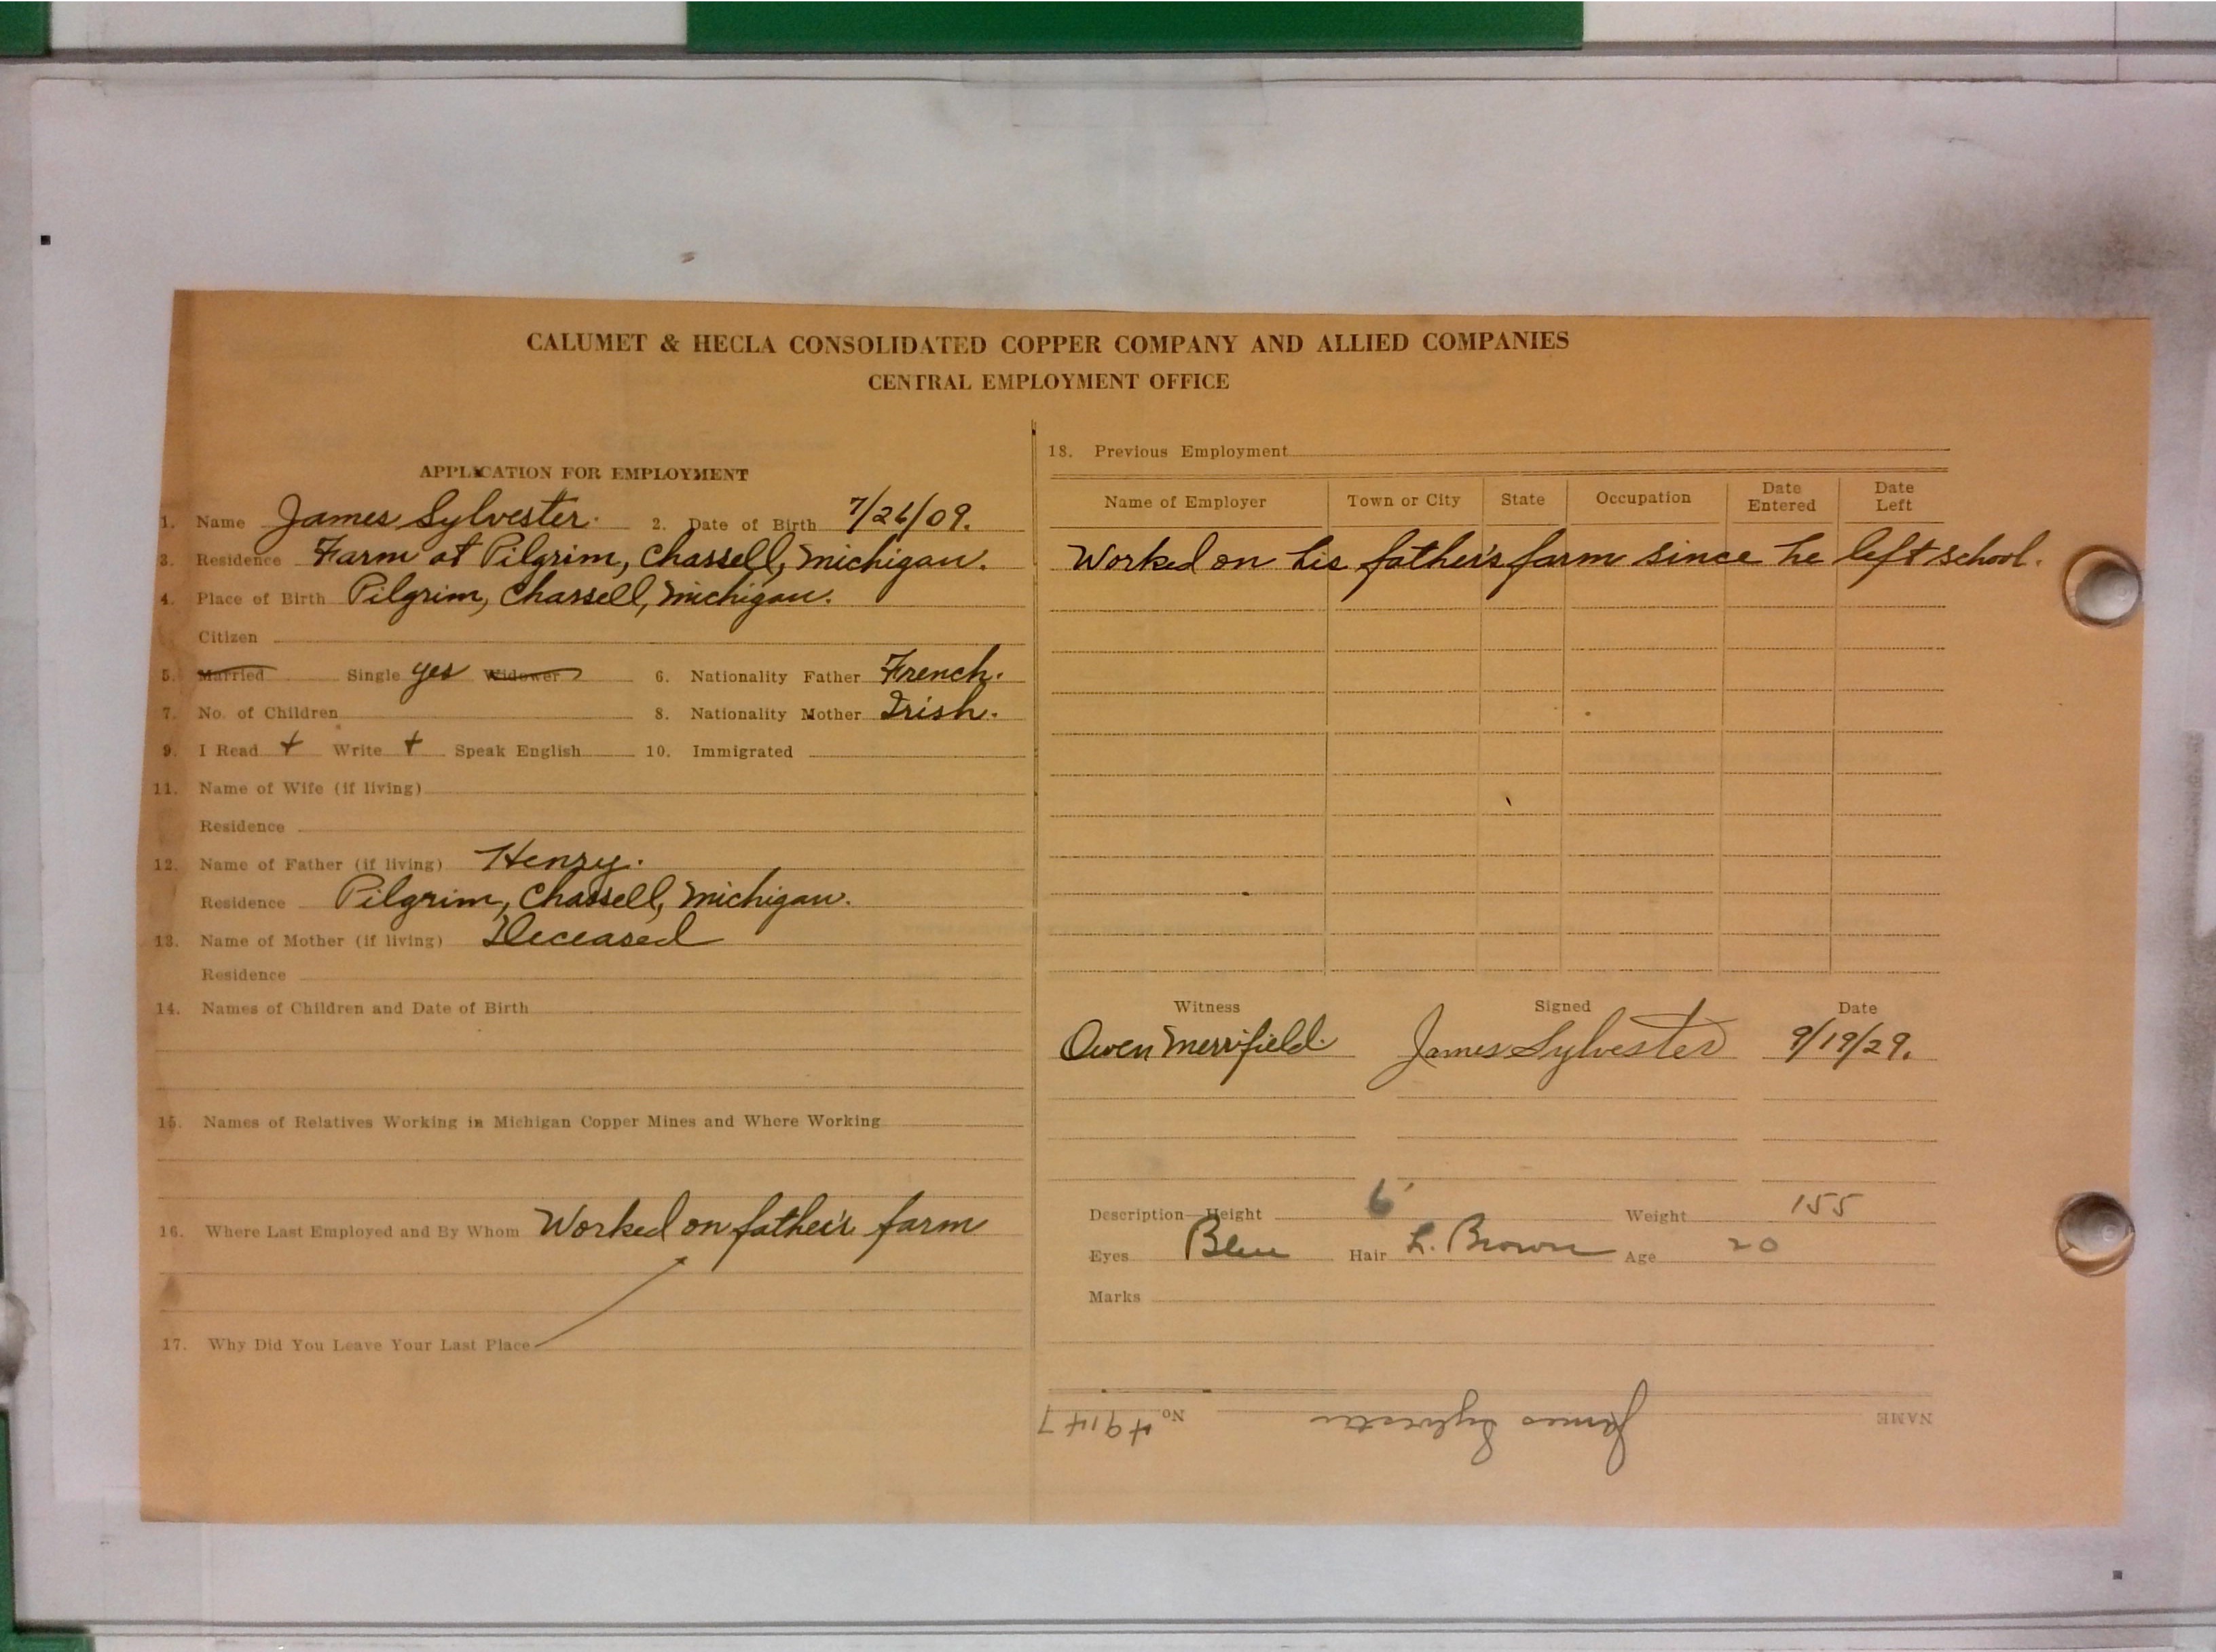 CALUMET & HECLA CONSOLIDATED COPPER COMPANY AND ALLIED COMPANIES
CENTRAL EMPLOYMENT OFFICE
APPLICATION FOR EMPLOYMENT
1. Name James Sylvester. 2. Date of Birth 7/26/09.
3. Residence Farm at Pilgrim, Chassell, Michigan.
4. Place of Birth Pilgrim, Chassell, Michigan.
Citizen
5. Married Single yes Widower 6. Nationality Father French.
7. No. of Children 8. Nationality Mother Irish.
9. I Read + Write + Speak English 10. Immigrated
11. Name of Wife (if living)
Residence
12. Name of Father (if living) Henry.
Residence Pilgrim, Chassell, Michigan.
13. Name of Mother (if living) Deceased
Residence
14. Names of Children and Date of Birth
15. Names of Relatives Working in Michigan Copper Mines and Where Working
16. Where Last Employed and By Whom Worked on father's farm
17. Why Did You Leave Your Last Place
18. Previous Employment
Name of Employer Town or City State Occupation Date Entered Date Left
Worked on his father's farm since he left school.
Witness Signed Date
Owen Merrifield. James Sylvester 9/19/29.
Description—Height 6' Weight 155
Eyes Blue Hair L. Brown Age 20
Marks
NAME James Sylvester No. 49147